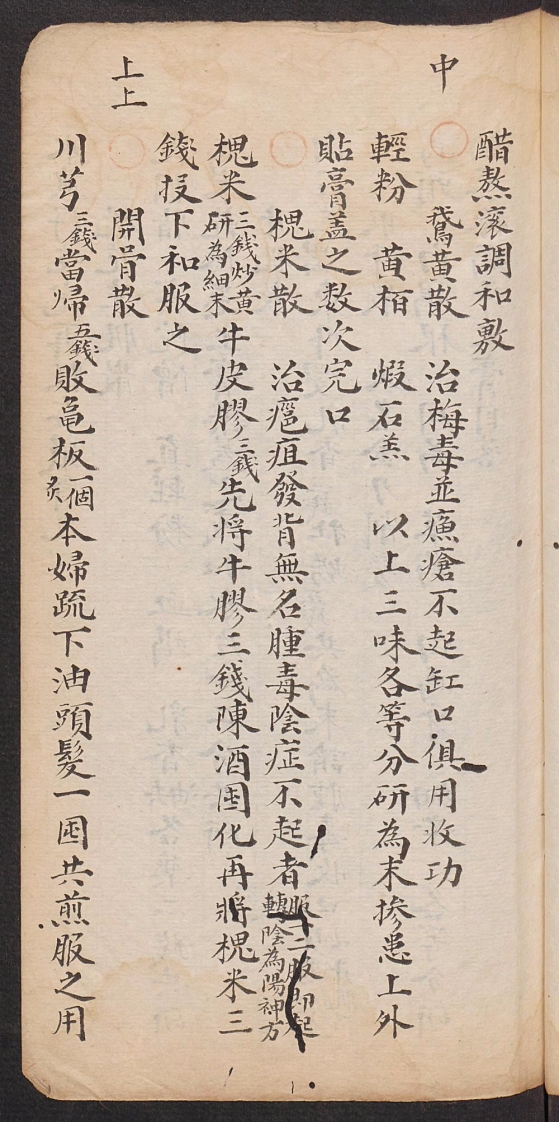 醋熬滾調和敷
中
鵞黃散 治梅毒並瘡瘡不起缸口俱用收功
輕粉 黃栢 煅石羔 以上三味各等分研為末掺患上外
貼膏蓋之数次完口
槐米散 治癰疽發背無名腫毒陰症不起者 服一二服即起 轉陰為陽神方
槐米 三錢炒黃 研為細末 牛皮膠 三錢 先將牛膠三錢陳酒囤化再將槐米三
錢投下和服之
上上
開骨散
川芎 三錢 當歸 五錢 敗龜板 一個 炙 本婦䟽下油頭髮一囤共煎服之用